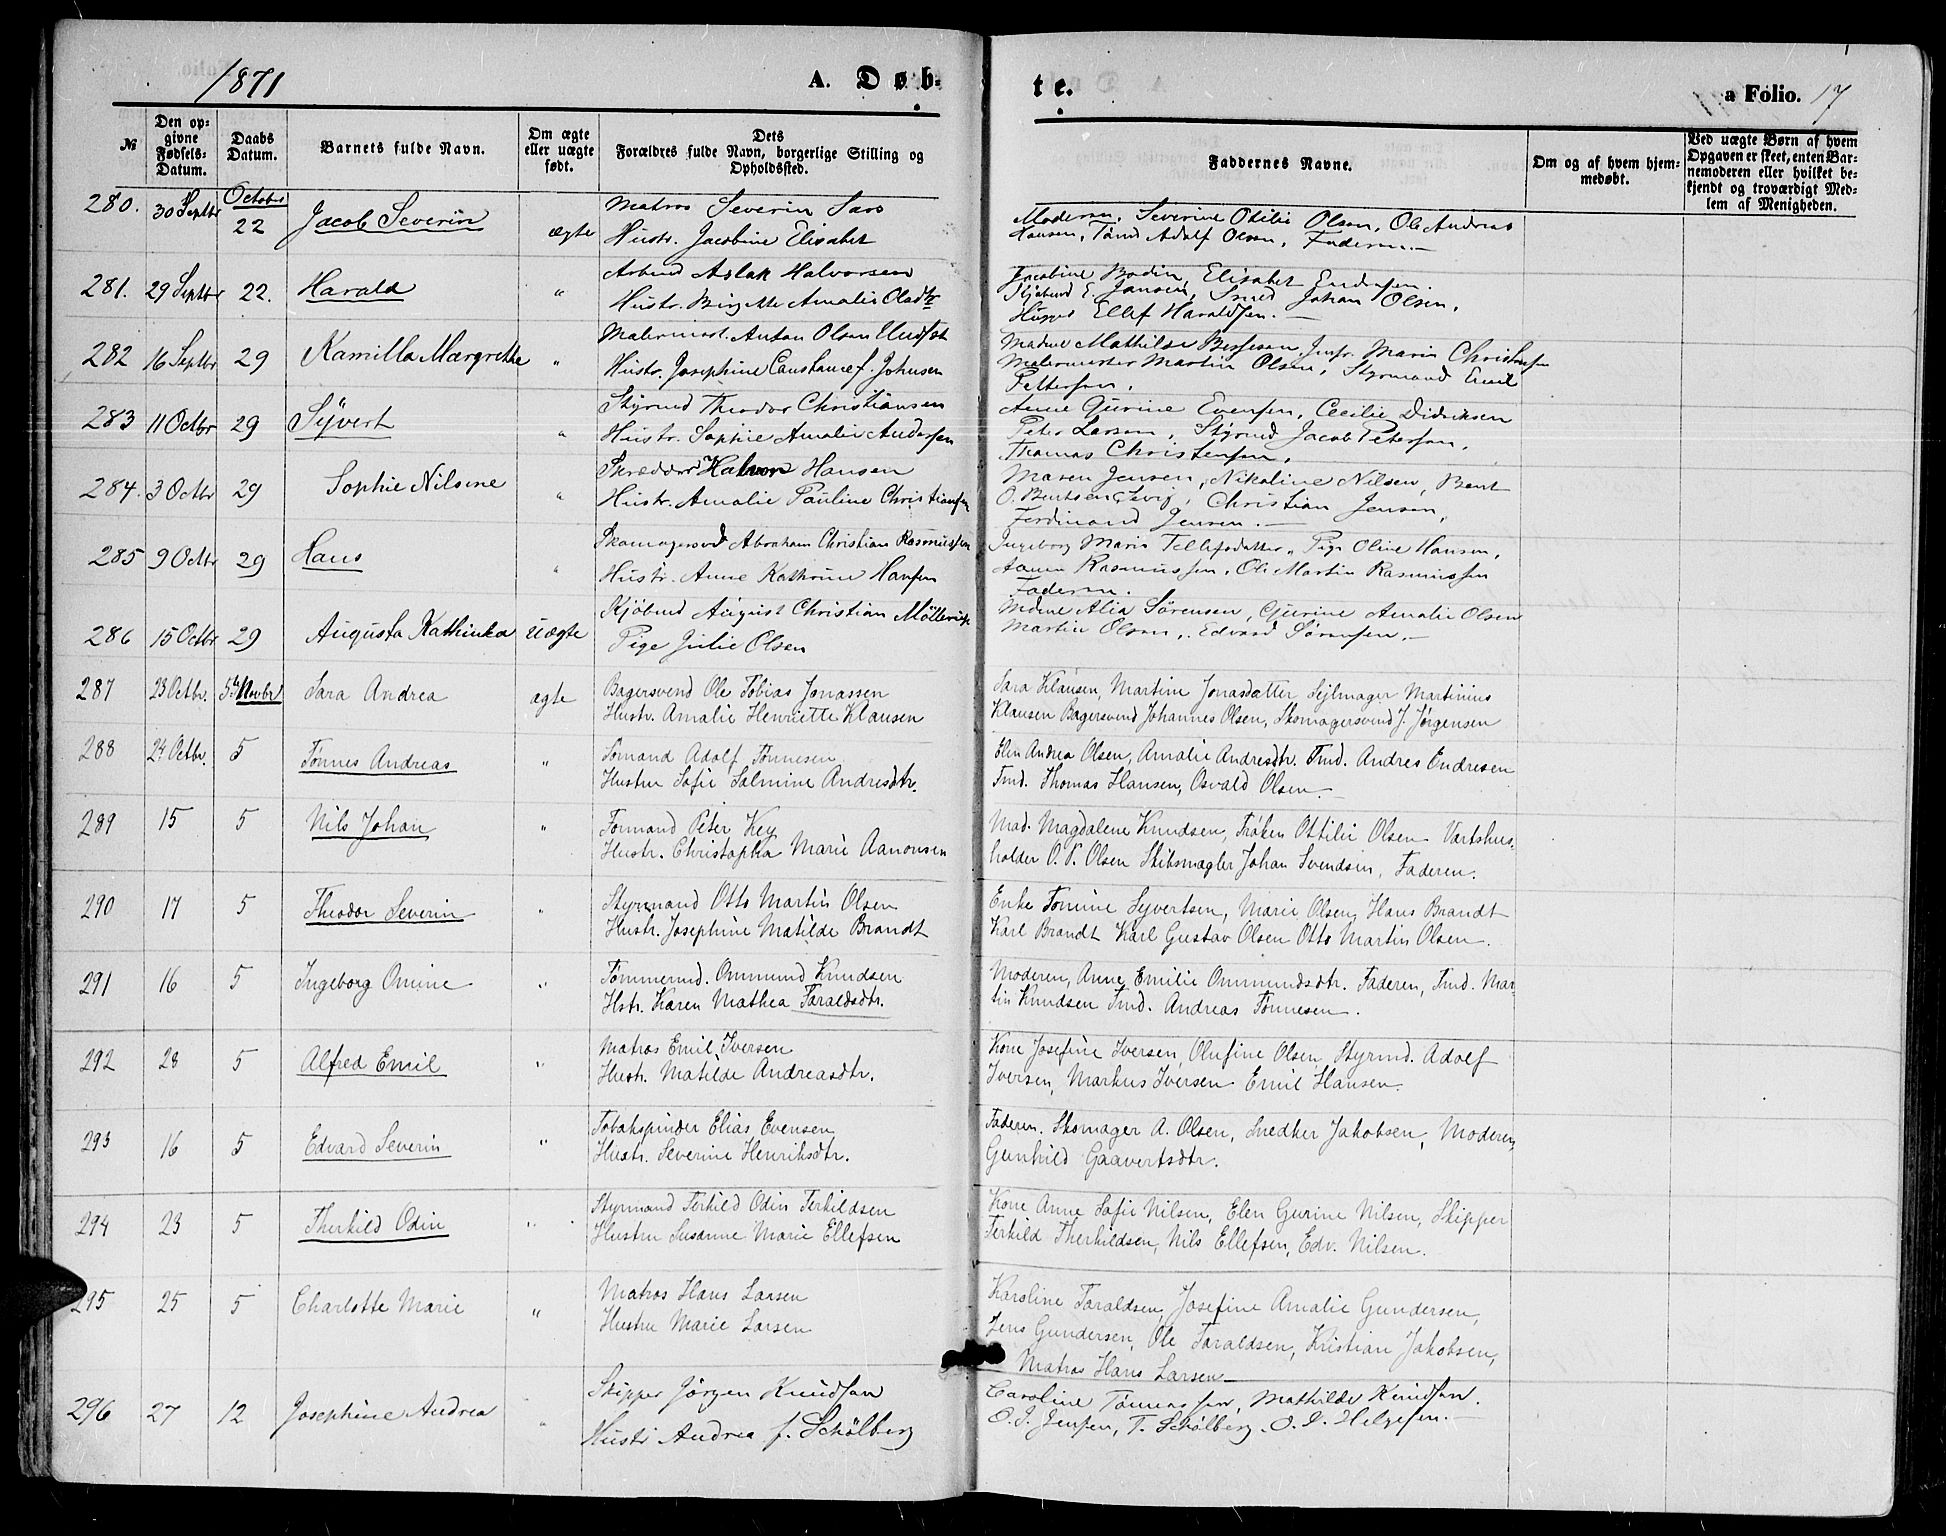 1871 A. Døb- te. a Folio. 17
№ Den op-givne Fødsels-Datum. Daabs Datum. Barnets fulde Navn. Om ægte eller uægte født. Dets Forældres fulde Navn, borgerlige Stilling og Opholdssted. Faddernes Navne. Om og af hvem hjem-medøbt. Ved uægte Børn af hvem Opgaven er skeet, enten Bar-nemoderen eller hvilket be-kjendt og troværdigt Med-lem af Menigheden.
280. 30 Septbr Octobr 22 Jacob Severin ægte Matros Severin Sars
Hustr. Jacobine Elisabet
Moderen, Severine Otilie Olsen, Ole Andreas
Hansen, Adolf Olsen, Faderen.—
281. 29 Septbr 22. Harald " Arbmd Aslak Halvorsen
Hustr. Birgitte Amalie Olsdtr
Jacobine Bodin, Elisabet Endresen.
E. Jansen, Smed Johan Olsen,
Ellef Haraldsen.—
282 16 Septbr 29 Kamilla Margrethe " Malermest. Anton Olsen
Hustr. Josephine Constance f. Johnsen
Madme Mathilde Jmfr. Marie Christensen
Malermester Martin Olsen, Styrmand Emil
Pettersen.
283 11 Octbr 29 Syvert " Styrmd Theodor Christiansen
Hustr. Sophie Amalie Andersen
Anne Gurine Evensen, Cecilie Didriksen
Peter Larsen, Styrmd Jacob Petersen,
Thomas Christensen.
284. 3 Octbr 29 Sophie Nilsine " Skrædder Halvor Hansen
Hustr. Amalie Pauline Christiansen
Maren Jensen, Nikoline Nilsen, Bent
O. Bentsen, Christian Jensen,
Ferdinand Jensen.—
285 9 Octbr 29 Hans " Skomagersvd Abraham Christian Rasmussen
Hustr. Anne Kathrine Hansen
Ingeborg Marie Tellefsdatter, Pige Oline Hansen,
Rasmussen, Ole Martin Rasmussen
Faderen.
286 15 Octbr 29 Augusta Kathinka Uægte Kjøbmd August Christian Möllerup
Pige Julie Olsen
Mdme Alia Sörensen, Gurine Amalie Olsen
Martin Olsen, Edvard Sörensen.—
287 23 Octbr. 5te Novbr Sara Andrea ægte Bagersvend Ole Tobias Jonassen
Hustr. Amalie Henriette Klausen
Sara Klausen, Martine Jonasdatter Sejlmager Martinius
Klausen Bagersvend Johannes Olsen, Skomagersvend J. Jørgensen
288 24 Octbr. 5 Tønnes Andreas " Sømand Adolf Tønnesen
Hustru Sofie Salmine Andresdtr.
Elen Andrea Olsen, Amalie Andresdtr. Tmd. Andres Endresen
Tmd. Thomas Hansen, Osvald Olsen.—
289 15 5 Nils Johan " Tømand Peter Key
Hustr. Christopha Marie Aanonsen
Mad. Magdalene Knudsen, Frøken Ottilie Olsen Vartshus-
holder O. P. Olsen Skibsmægler Johan Svendsen, Faderen.
290 17 5 Theodor Severin " Styrmand Otto Martin Olsen
Hustr. Josephine Matilde Brandt
Enke Tomine Syvertsen, Marie Olsen, Hans Brandt
Karl Brandt Karl Gustav Olsen Otto Martin Olsen.
291 16 5 Ingeborg Omine " Tømmermd. Ommund Knudsen
Hstr. Karen Mathea Taraldsdtr.
Moderen, Anne Emilie Ommundsdtr. Faderen, Tmd. Mar-
tin Knudsen Tmd. Andreas Tønnesen.
292 28 5 Alfred Emil " Matros Emil Iversen
Hustr. Matilde Andreasdtr.
Kone Josefine Iversen, Olufine Olsen, Styrmd. Adolf
Iversen, Markus Iversen Emil Hansen.
293 16 5 Edvard Severin " Tobakspinder Elias Evensen
Hustr. Severine Henriksdtr.
Faderen. Skomager A. Olsen, Snedker Jakobsen, Moderen,
Gunhild Gaavertsdtr.
294 23 5 Therkild Odin " Styrmand Terkild Odin Terkildsen
Hustru Susanne Marie Ellefsen
Kone Anne Sofie Nilsen, Elen Gurine Nilsen, Skipper
Terkild Therkildsen, Nils Ellefsen, Edv. Nilsen.
295 25 5 Charlotte Marie " Matros Hans Larsen
Hustru Marie Larsen
Karoline Taraldsen, Josefine Amalie Gundersen,
Jens Gundersen, Ole Taraldsen, Kristian Jakobsen,
Matros Hans Larsen—
296 27 12 Josephine Andrea " Skipper Jörgen Knudsen
Hustr Andrea f. Schölberg
Caroline Tönnessen, Mathilde Knudsen.
O. J. Jensen, T. Schölberg. O. J. Helgesen.—